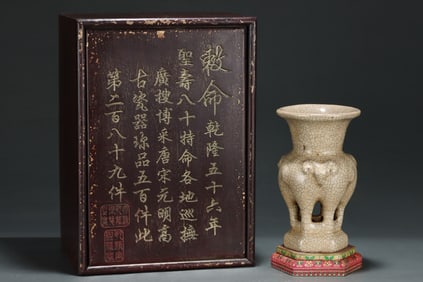 敕命乾隆五十六年
聖壽八十特命各地巡撫
廣搜博采唐宋元明高
古瓷器珍品五百件此
第二百八十九件